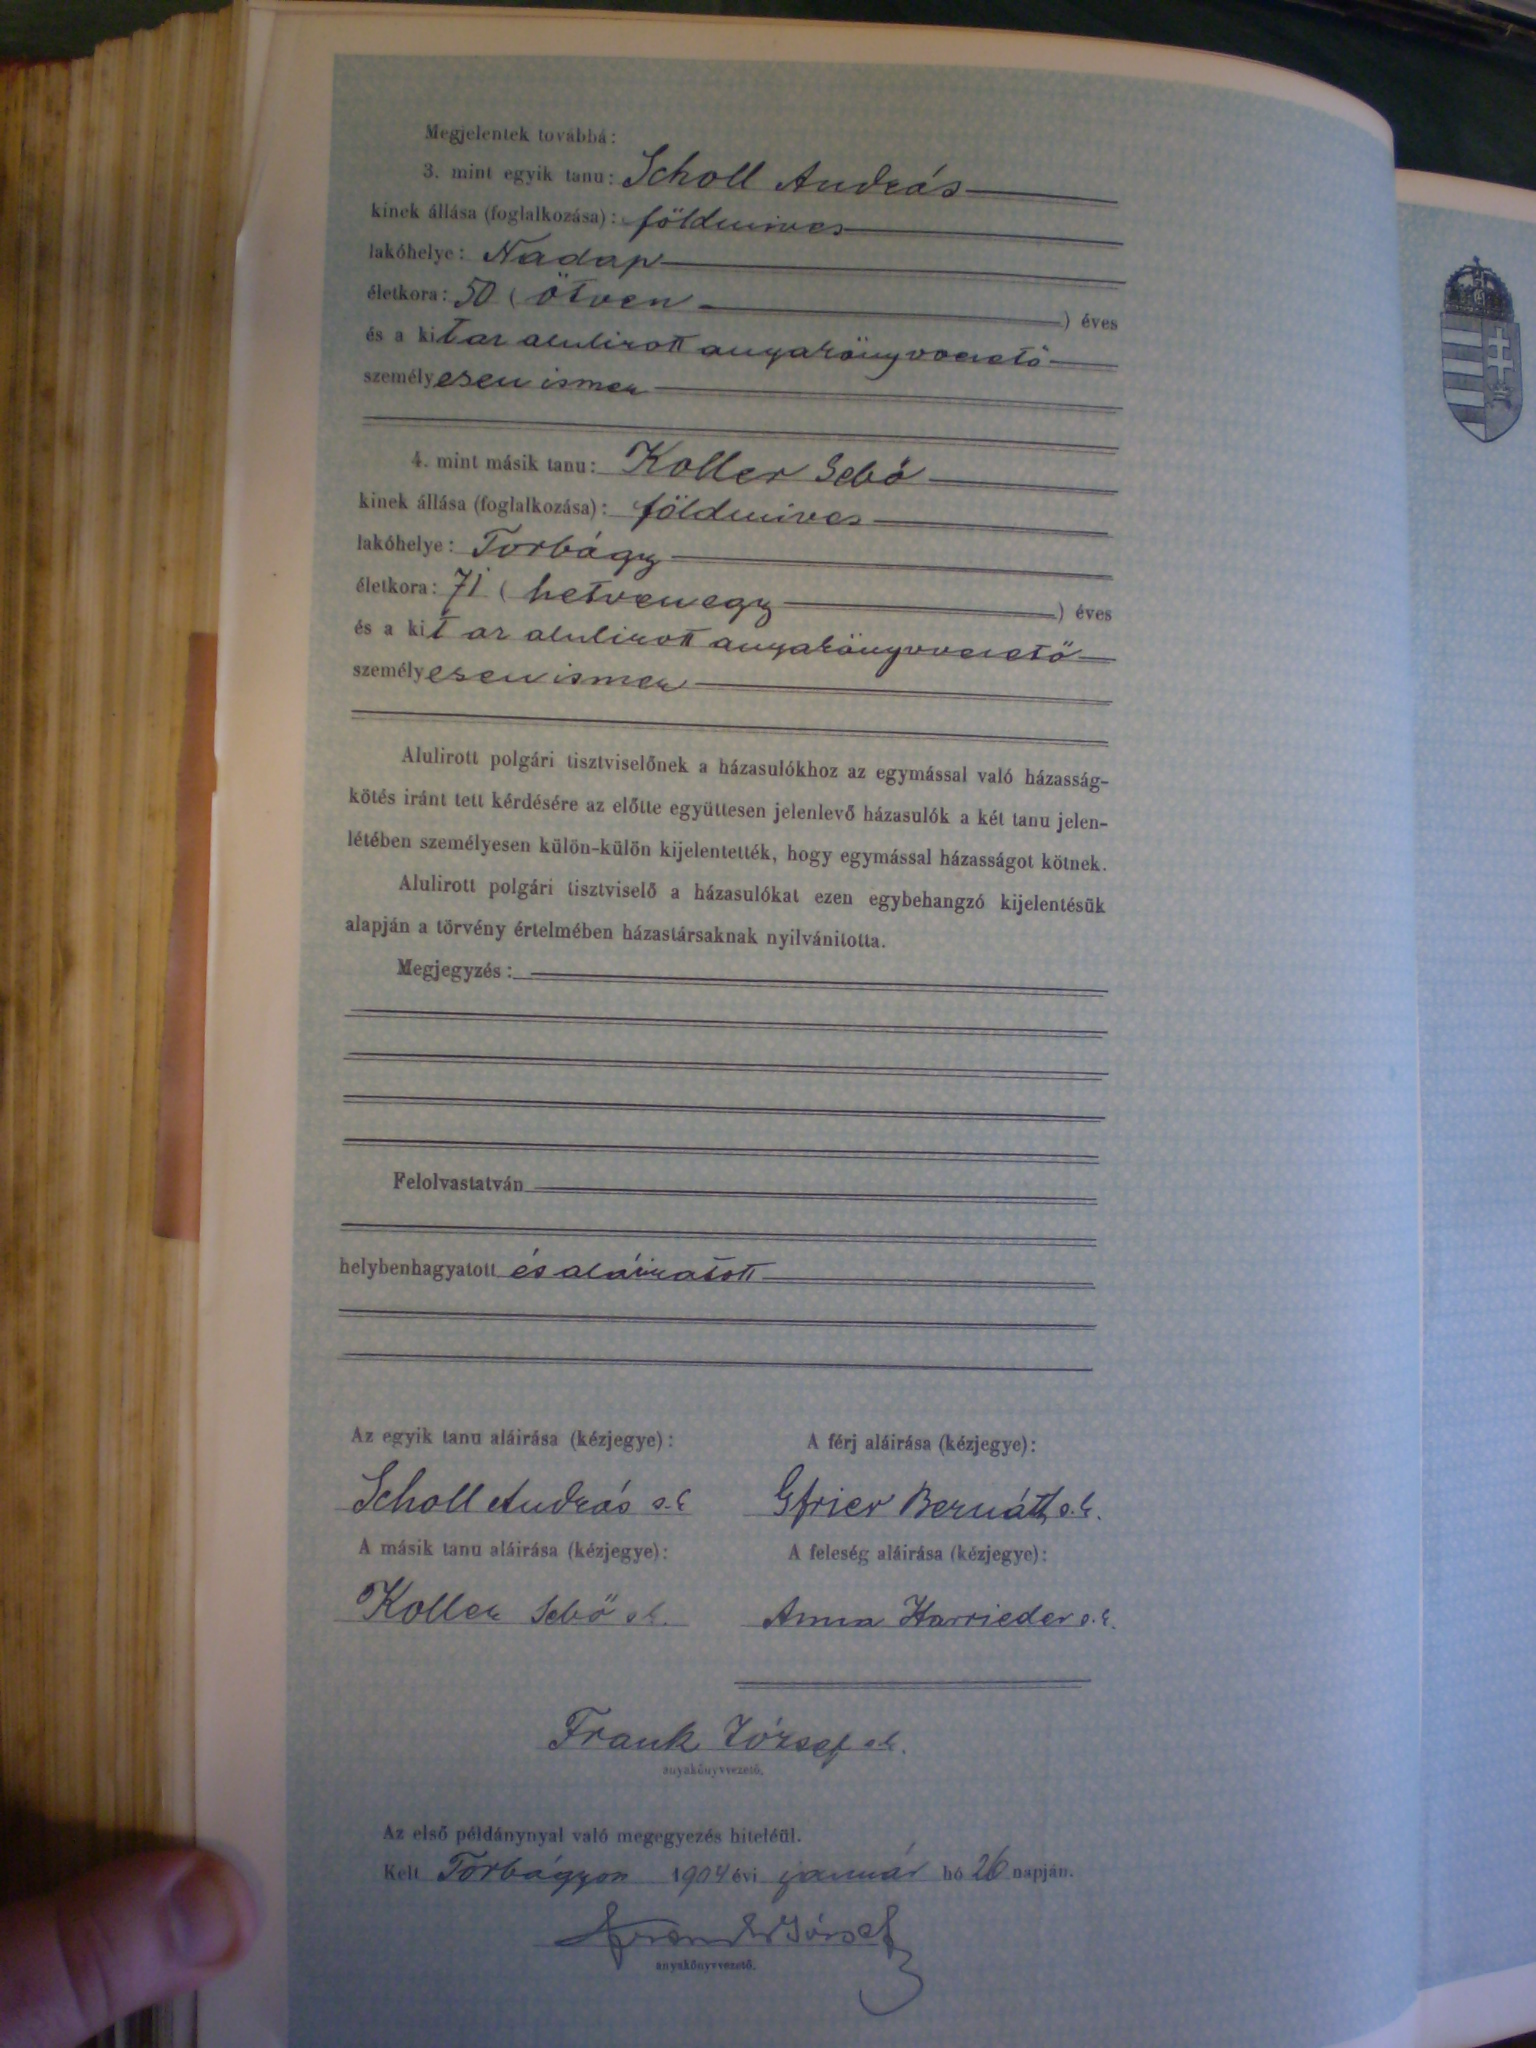 Megjelentek továbbá:
3. mint egyik tanu: Scholl András
kinek állása (foglalkozása): földmives
lakóhelye: Nadap
életkora: 50 (ötven) éves
és a kit az alulirott anyakönyvvezető
személyesen ismer
4. mint másik tanu: Koller Sebő
kinek állása (foglalkozása): földmives
lakóhelye: Torbágy
életkora: 71 (hetvenegy) éves
és a kit az alulirott anyakönyvvezető
személyesen ismer
Alulirott polgári tisztviselőnek a házasulókhoz az egymással való házasság-
kötés iránt tett kérdésére az előtte együttesen jelenlevő házasulók a két tanu jelen-
létében személyesen külön-külön kijelentették, hogy egymással házasságot kötnek.
Alulirott polgári tisztviselő a házasulókat ezen egybehangzó kijelentésük
alapján a törvény értelmében házastársaknak nyilvánitotta.
Megjegyzés:
Felolvastatván
helybenhagyatott és aláiratott
Az egyik tanu aláirása (kézjegye): A férj aláirása (kézjegye):
Scholl András s.k. Gfrier Bernáth s.k.
A másik tanu aláirása (kézjegye): A feleség aláirása (kézjegye):
Koller Sebő s.k. Anna Harrieder s.k.
Frank József s.k.
anyakönyvvezető.
Az első példánynyal való megegyezés hiteléül.
Kelt Torbágyon 1904 évi január hó 26 napján.
Frank József
anyakönyvvezető.